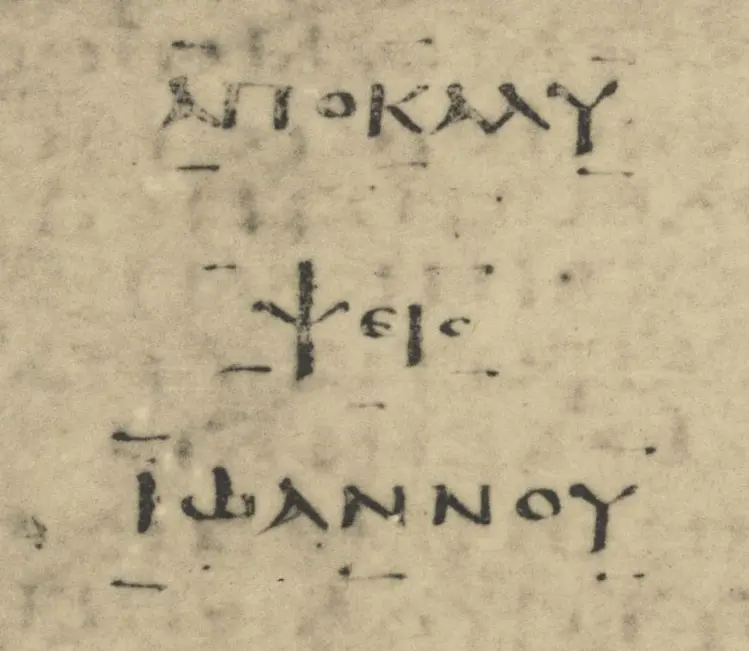 ΑΠΟΚΑΛΥ
ΨΕΙϹ
ΙΩΑΝΝΟΥ